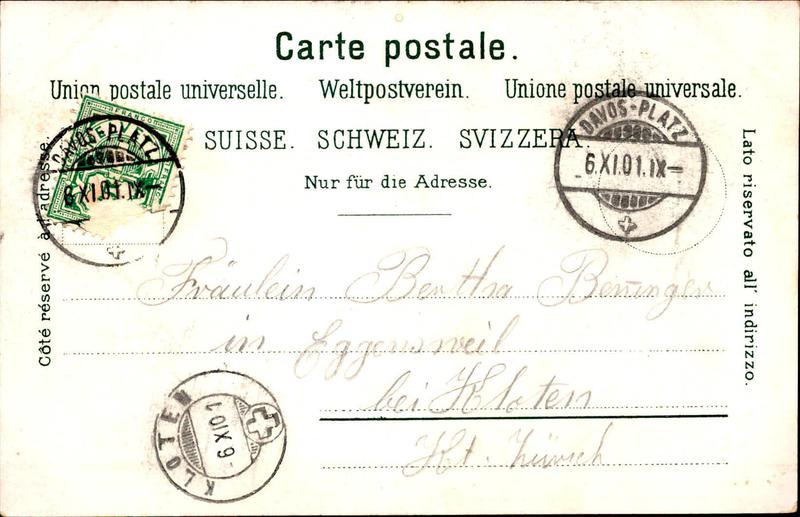 Carte postale.
Union postale universelle. Weltpostverein. Unione postale universale.
SUISSE. SCHWEIZ. SVIZZERA.
Nur für die Adresse.
Côté réservé à l'adresse.
Lato riservato all' indirizzo.
FRANCO
DAVOS-PLATZ
6.XI.01.IX—
DAVOS-PLATZ
6.XI.01.IX—
Fräulein Bertha Benninger
in Eggensweil
bei Kloten
Kt. Zürich
KLOTEN
6 XI 01